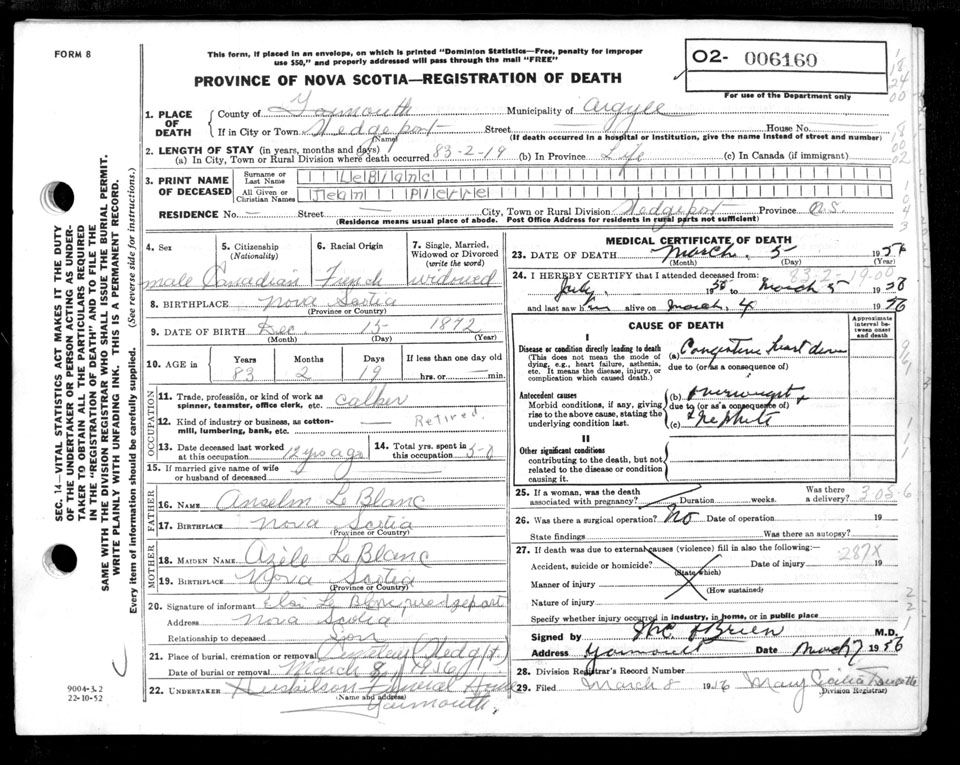 FORM 8
This form, if placed in an envelope, on which is printed "Dominion Statistics—Free, penalty for improper
use $50," and properly addressed will pass through the mail "FREE"
PROVINCE OF NOVA SCOTIA—REGISTRATION OF DEATH
02- 006160
For use of the Department only
1. PLACE OF DEATH { County of Yarmouth Municipality of Argyle
If in City or Town Wedgeport Street House No.
(Name) (If death occurred in a hospital or institution, give the name instead of street and number)
2. LENGTH OF STAY (in years, months and days)
(a) In City, Town or Rural Division where death occurred 83-2-19 (b) In Province Life (c) In Canada (if immigrant)
3. PRINT NAME OF DECEASED
Surname or Last Name LeBlanc
All Given or Christian Names Jean Pierre
RESIDENCE No. — Street — City, Town or Rural Division Wedgeport Province N.S.
(Residence means usual place of abode. Post Office Address for residents in rural parts not sufficient)
4. Sex male
5. Citizenship (Nationality) Canadian
6. Racial Origin French
7. Single, Married, Widowed or Divorced (write the word) widowed
8. BIRTHPLACE Nova Scotia
(Province or Country)
9. DATE OF BIRTH Dec. 15 1872
(Month) (Day) (Year)
10. AGE in Years Months Days If less than one day old
83 2 19 hrs. or — min.
OCCUPATION
11. Trade, profession, or kind of work as spinner, teamster, office clerk, etc. calker
12. Kind of industry or business, as cotton-mill, lumbering, bank, etc. — Retired.
13. Date deceased last worked at this occupation 12 yrs ago
14. Total yrs. spent in this occupation 50
15. If married give name of wife or husband of deceased
FATHER
16. NAME Anselm Le Blanc
17. BIRTHPLACE Nova Scotia
(Province or Country)
MOTHER
18. MAIDEN NAME Azèle Le Blanc
19. BIRTHPLACE Nova Scotia
(Province or Country)
20. Signature of informant Eloi Le Blanc, Wedgeport
Address Nova Scotia
Relationship to deceased Son
21. Place of burial, cremation or removal
Date of burial or removal March 8, 1956
22. UNDERTAKER Funeral Home
(Name and address)
Yarmouth.
MEDICAL CERTIFICATE OF DEATH
23. DATE OF DEATH March 5 1956
(Month) (Day) (Year)
83-2-19-00
24. I HEREBY CERTIFY that I attended deceased from:
July March 5 19
and last saw him alive on March 4 1956
CAUSE OF DEATH
Approximate interval between onset and death
I
Disease or condition directly leading to death
(This does not mean the mode of dying, e.g., heart failure, asthenia, etc. It means the disease, injury, or complication which caused death.)
(a) Congestive heart
due to (or as a consequence of)
Antecedent causes
Morbid conditions, if any, giving rise to the above cause, stating the underlying condition last.
(b) overweight
due to (or as a consequence of)
(c)
II
Other significant conditions
contributing to the death, but not related to the disease or condition causing it.
25. If a woman, was the death associated with pregnancy? Duration weeks. Was there a delivery?
305-6
26. Was there a surgical operation? No Date of operation 19
State findings Was there an autopsy?
27. If death was due to external causes (violence) fill in also the following:—
287X
Accident, suicide or homicide? Date of injury 19
(State which)
Manner of injury
(How sustained)
Nature of injury
Specify whether injury occurred in industry, in home, or in public place
Signed by O'Brien M.D.
Address Yarmouth Date March 7 1956
28. Division Registrar's Record Number
29. Filed March 8 1956 Mary
Division Registrar
SEC. 14—VITAL STATISTICS ACT MAKES IT THE DUTY
OF THE UNDERTAKER OR PERSON ACTING AS UNDER-
TAKER TO OBTAIN ALL THE PARTICULARS REQUIRED
IN THE "REGISTRATION OF DEATH" AND TO FILE THE
SAME WITH THE DIVISION REGISTRAR WHO SHALL ISSUE THE BURIAL PERMIT.
WRITE PLAINLY WITH UNFADING INK. THIS IS A PERMANENT RECORD.
Every item of information should be carefully supplied. (See reverse side for instructions.)
9004-3.2
22-10-52